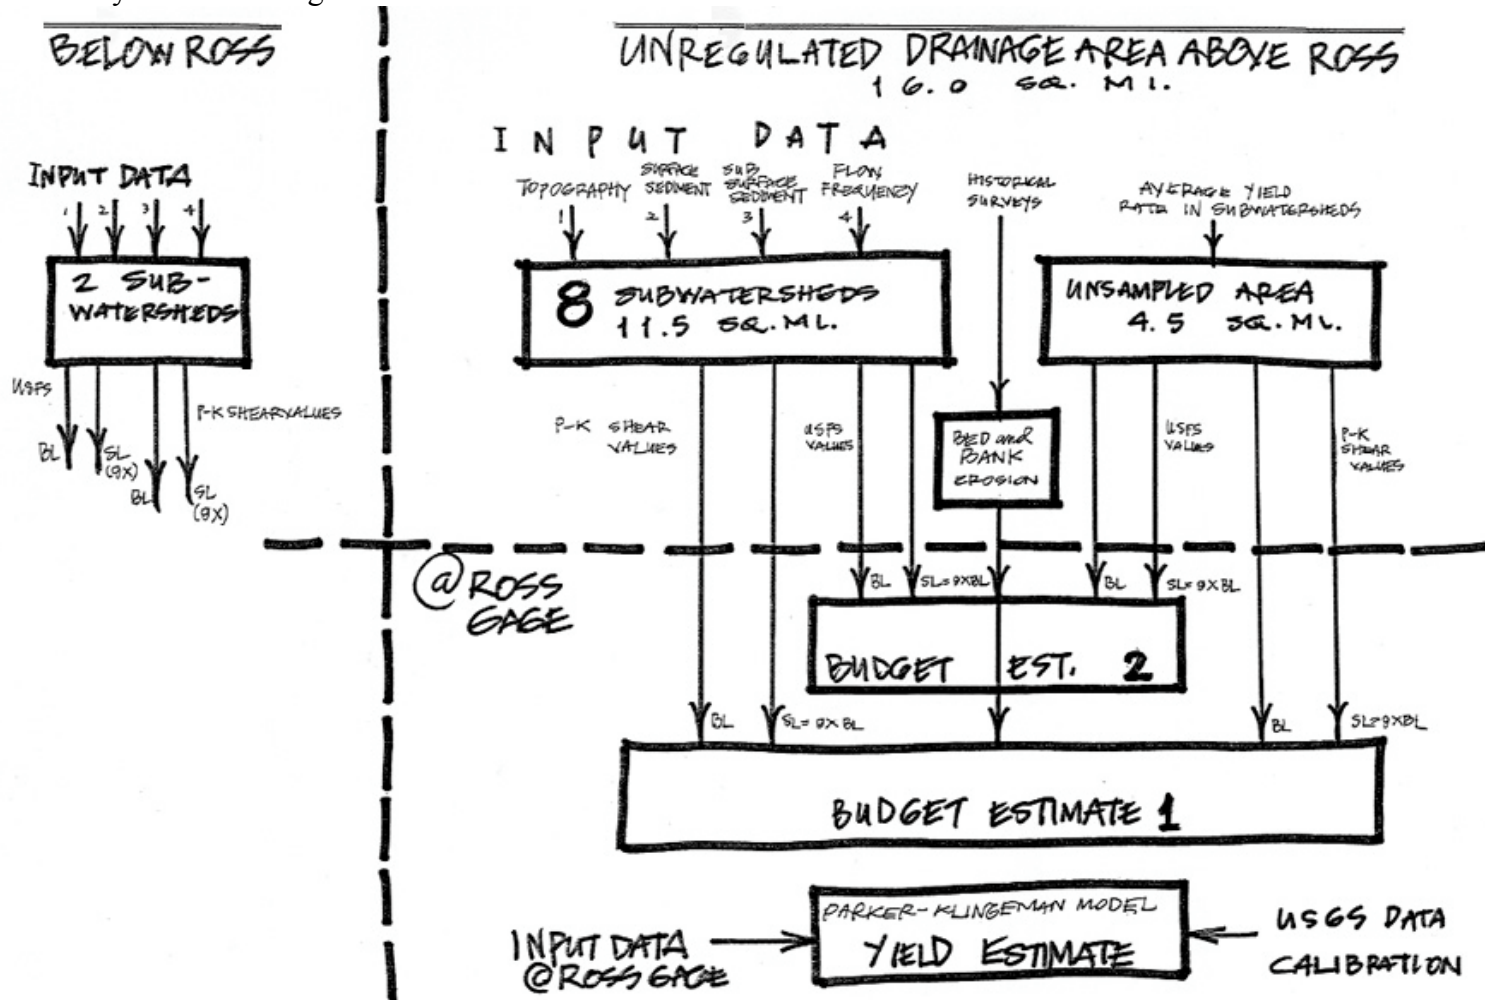 BELOW ROSS
UNREGULATED DRAINAGE AREA ABOVE ROSS
16.0 SQ. MI.
INPUT DATA
1 2 3 4
2 SUB-
WATERSHEDS
USFS
P-K SHEAR VALUES
BL
SL
(9X)
BL
SL
(9X)
INPUT DATA
TOPOGRAPHY
SURFACE
SEDIMENT
SUB
SURFACE
SEDIMENT
FLOW
FREQUENCY
1 2 3 4
HISTORICAL
SURVEYS
AVERAGE YIELD
RATE IN SUBWATERSHEDS
8 SUBWATERSHEDS
11.5 SQ. MI.
UNSAMPLED AREA
4.5 SQ. MI.
P-K SHEAR
VALUES
USFS
VALUES
BED and
BANK
EROSION
USFS
VALUES
P-K
SHEAR
VALUES
@ ROSS
GAGE
BL
SL=9XBL
BL
SL=9XBL
BUDGET EST. 2
BL
SL=9XBL
BL
SL=9XBL
BUDGET ESTIMATE 1
INPUT DATA
@ROSS GAGE
PARKER-KLINGEMAN MODEL
YIELD ESTIMATE
USGS DATA
CALIBRATION